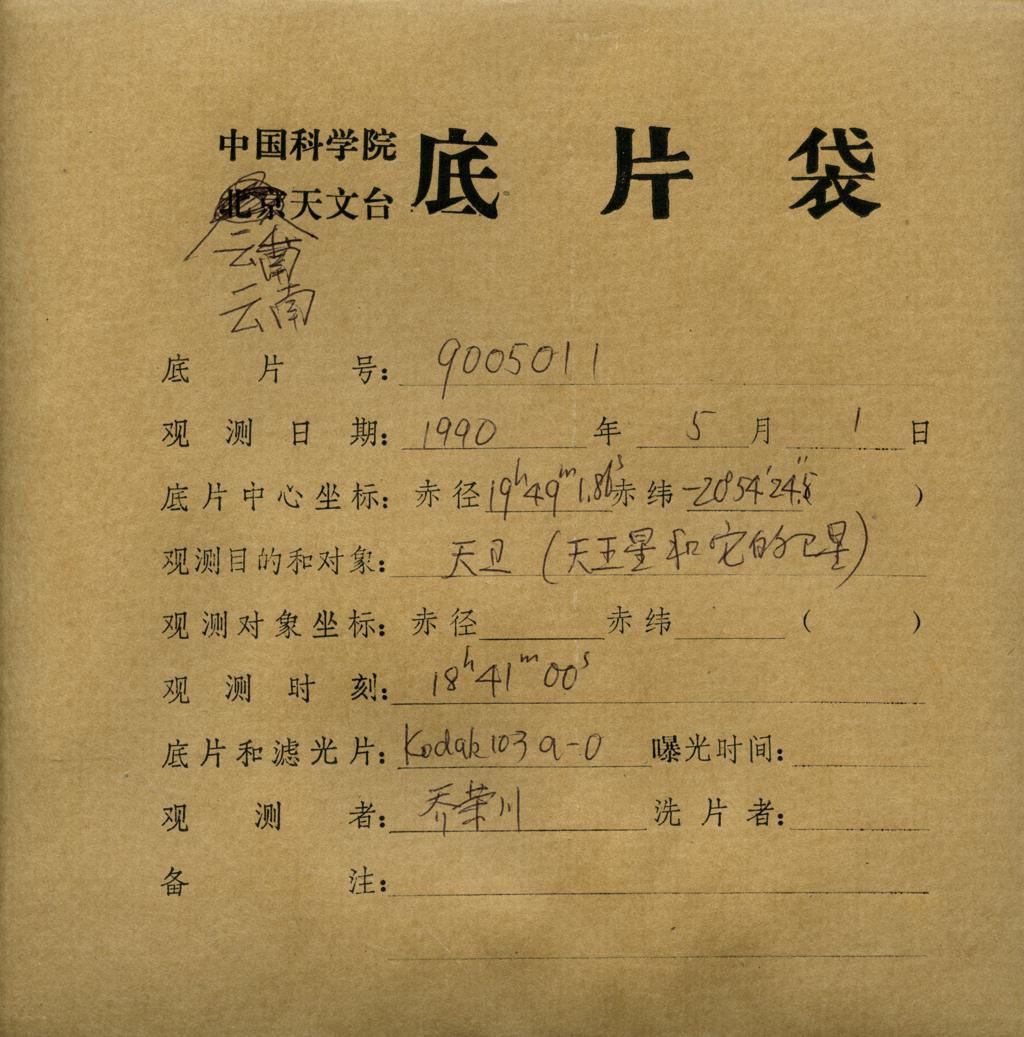 中国科学院 底片袋
北京天文台
云南
云南
底片号：9005011
观测日期：1990年5月1日
底片中心坐标：赤径19ʰ49ᵐ1.86ˢ赤纬-20°54′24.8″ ）
观测目的和对象：天卫（天王星和它的卫星）
观测对象坐标：赤径 赤纬 （ ）
观测时刻：18ʰ41ᵐ00ˢ
底片和滤光片：Kodak103a-O 曝光时间：
观测者：乔荣川 洗片者：
备注：